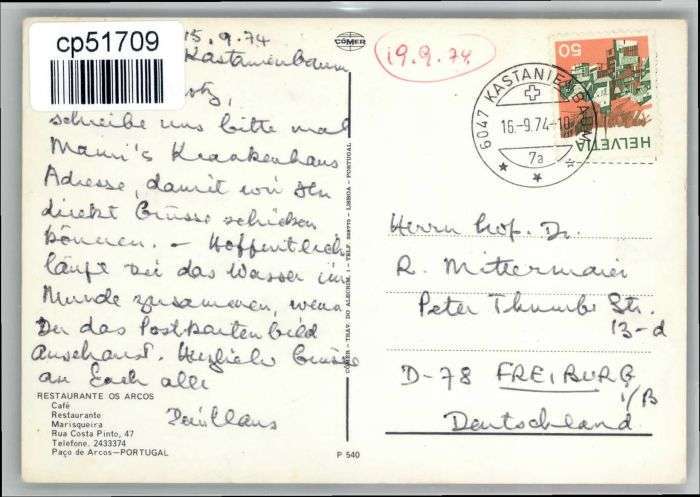 cp51709
15.9.74
Kastanienbaum
schreibe uns bitte mal
Mami's Krankenhaus
Adresse, damit wir den
direkt Grüsse schicken
können. – Hoffentlich
läuft dir das Wasser im
Munde zusammen, wenn
Du das Postkartenbild
anschaust. Herzliche Grüsse
an Euch alle
RESTAURANTE OS ARCOS
Café
Restaurante
Marisqueira
Rua Costa Pinto, 47
Telefone, 2433374
Paço de Arcos—PORTUGAL
CÓMER
CÓMER - TRAV. DO ALECRIM, 1 - TELF. - LISBOA - PORTUGAL
P 540
19.9.74
6047 KASTANIENBAUM
16.-9.74-10
7a
50
HELVETIA
Herrn Prof. Dr.
R. Mittermaier
Peter Thumb Str.
13-d
D-78 FREIBURG
i/B
Deutschland